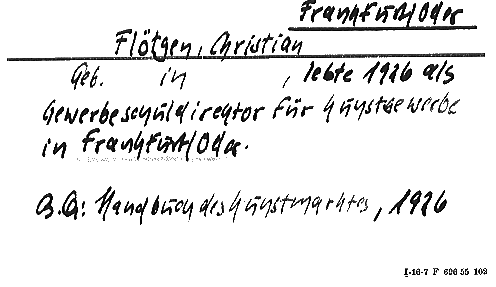 Frankfurt/Oder
Flötgen, Christian
Geb. in , lebte 1926 als
Gewerbeschuldirektor für Kunstgewerbe
in Frankfurt/Oder.
B.Q.: Handbuch des Kunstmarktes, 1926
I-16-7 F 696 55 102